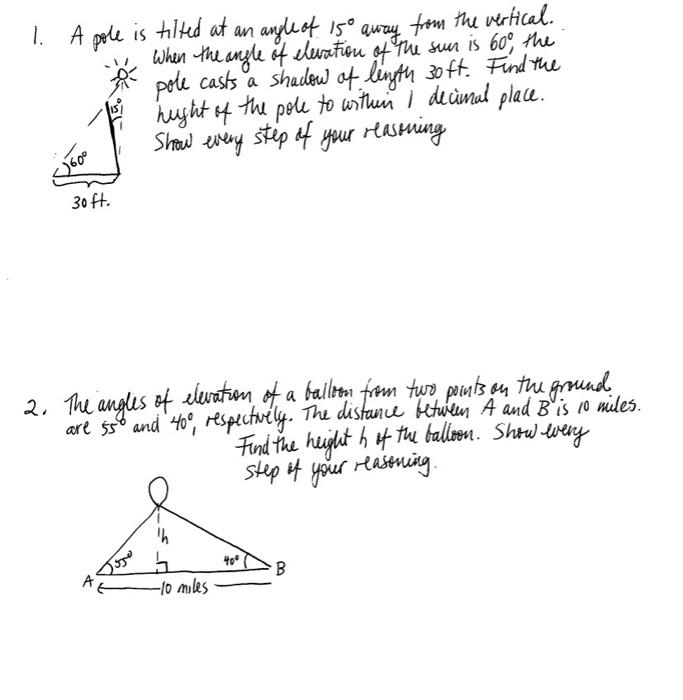 1. A pole is tilted at an angle of 15° away from the vertical.
When the angle of elevation of the sun is 60°, the
pole casts a shadow of length 30 ft. Find the
height of the pole to within 1 decimal place.
Show every step of your reasoning
15°
60°
30 ft.
2. The angles of elevation of a balloon from two points on the ground
are 55° and 40°, respectively. The distance between A and B is 10 miles.
Find the height h of the balloon. Show every
step of your reasoning.
h
55°
40°
A
B
10 miles